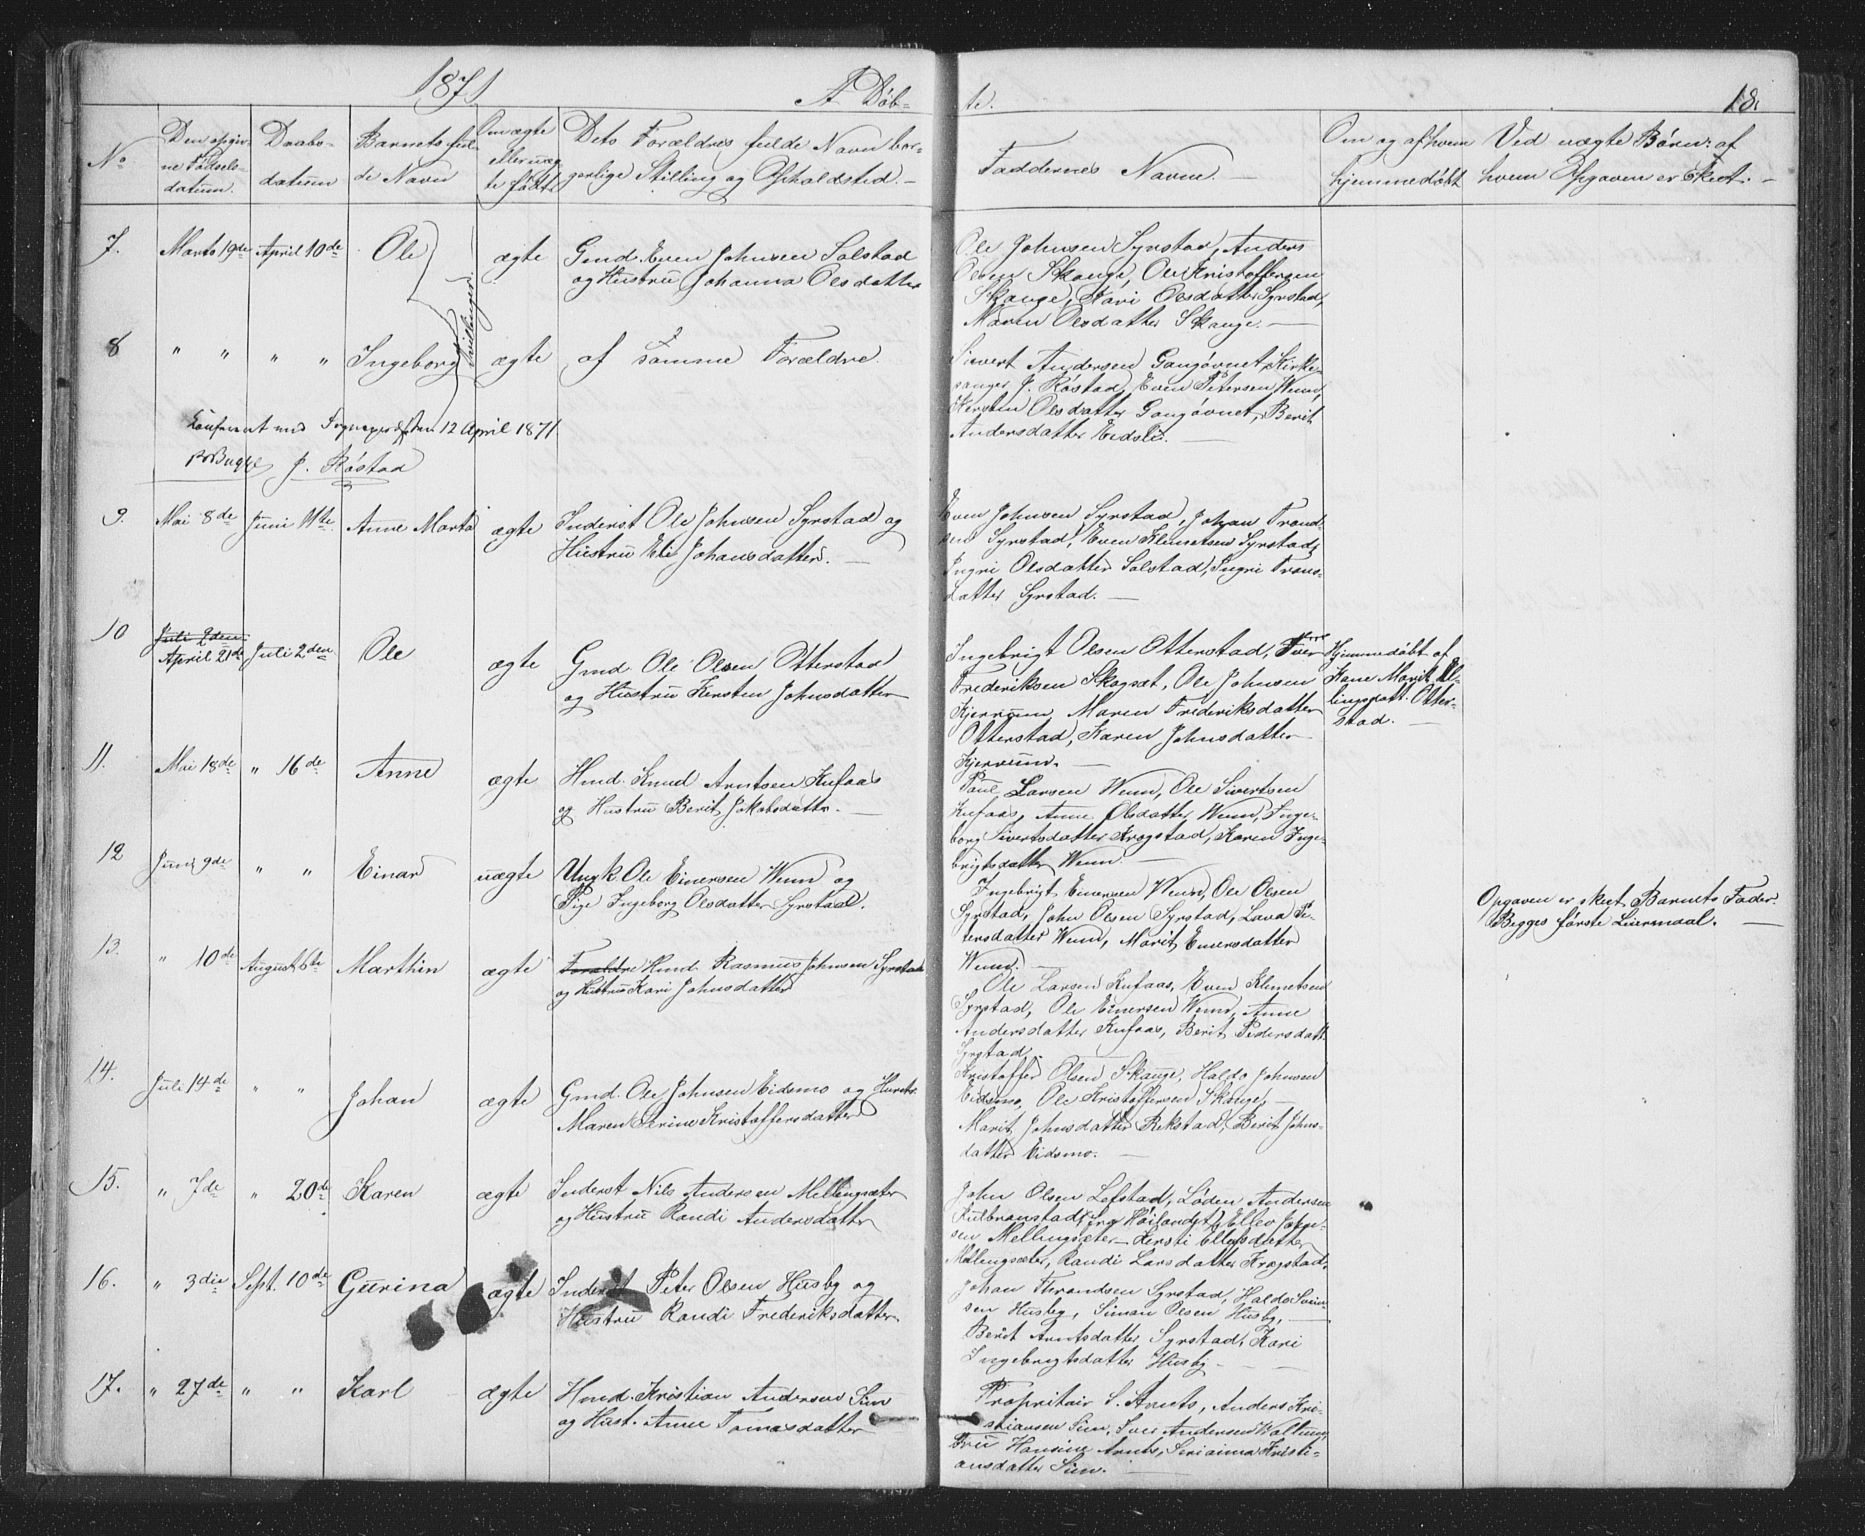 1871
A. Døb-
te.
18.
No
Den opgiv-
ne Fødsels-
datum.
Daabs-
datum
Barnets ful-
de Navn
Om ægte
eller uæg-
te født
Dets Forældres fulde Navn bor-
gerlige Stilling og Opholdsted.
Faddernes Navne.
Om og af hvem
hjemmedøbt
Ved uægte Børn: af
hvem Opgaven er skeet.
7. Marts 19de April 10de Ole ægte Gmd. Even Johnsen Solstad
og Hustru Johanna Olsdatter
Tvillinger
Ole Johnsen Syrstad, Anders
Olsen Skauge, Ole Kristoffersen
Skauge, Kari Olsdatter Syrstad,
Maren Olsdatter Skauge.
8 " " " " Ingeborg ægte af samme Forældre.
Sivert Andersen Gangøvnet, Kirke-
sanger J. Røstad, Even Petersen Wenn,
Kersten Olsdatter Gangøvnet, Berit
Andersdatter Eidsli.
Konfereret med Sognepræsten 12 April 1871
Bugge J. Røstad
9. Mai 8de Juni 11te Anne Marta ægte Inderst Ole Johnsen Syrstad og
Hustru Eli Johansdatter.
Even Johnsen Syrstad, Johan Trond-
sen Syrstad, Even Klemetsen Syrstad,
Ingri Olsdatter Solstad, Ingri Trons-
datter Syrstad.
10 Juli 2den
April 21de Juli 2den Ole ægte Gmd. Ole Olsen Otterstad
og Hustru Kersten Johnsdatter
Ingebrigt Olsen Otterstad, Iver
Frederiksen Skogsæt, Ole Johnsen
Kjerruum, Maren Frederiksdatter
Otterstad, Karen Johnsdatter
Kjerruum.
Hjemmedøbt af
Kone Marit El-
lingsdatt. Otter-
stad.
11. Mai 18de " 16de Anne ægte Hmd. Knud Arntsen Kufaas
og Hustru Berit Jakobsdatter.
Paul Larsen Wenn, Ole Sivertsen
Kufaas, Anne Olsdatter Wenn, Inge-
borg Sivertsdatter Krogstad, Karen Inge-
brigtsdatter Wenn.
12 Juni 9de " " Einar uægte Ungk. Ole Einersen Wenn og
Pige Ingeborg Olsdatter Syrstad.
Ingebrigt Einersen Wenn, Ole Olsen
Syrstad, John Olsen Syrstad, Lava Pe-
tersdatter Wenn, Marit Einersdatter
Wenn.
Opgaven er skeet Barnets Fader.
Begges første Leiermaal.
13. " 10de August 6te Marthin ægte Forældre Hmd. Rasmus Johnsen Syrstad
og Hustru Kari Johnsdatter
Ole Larsen Kufaas, Even Klemetsen
Syrstad, Ole Einersen Wenn, Anne
Andersdatter Kufaas, Berit Pedersdatt.
Syrstad.
14. Juli 14de " " Johan ægte Gmd. Ole Johnsen Eidsmo og Hustr.
Maren Serine Kristoffersdatter
Kristoffer Olsen Skauge, Haldo Johnsen
Eidsmo, Ole Kristoffersen Skauge,
Marit Johnsdatter Rekstad, Berit Johns-
datter Eidsmo.
15. " 7de " 20de Karen ægte Inderst Nils Andersen Mellingsæter
og Hustru Randi Andersdatter
John Olsen Lefstad, Loden Andersen
Høilandet, Ellev
sen Mellingsæter, Kersti Ellevsdatter
Mellingsæter, Randi Larsdatter Krogstad.
16. " 3die Sept. 10de Gurina ægte Inderst Peter Olsen Husby og
Hustru Randi Frederiksdatter
Johan Throndsen Syrstad, Haldo
sen Husby, Simon Olsen Husby,
Berit Arntsdatter Syrstad, Kari
Ingebrigtsdatter Husby
17. " 27de " " Karl ægte Hmd. Kristian Andersen Sun
og Hust. Anne Tomasdatter
Propritair S. Arnts, Anders Kri-
stiansen Sun, Andersen
Fru Hansine Arnts, Serianna Kristi-
ansdatter Sun.